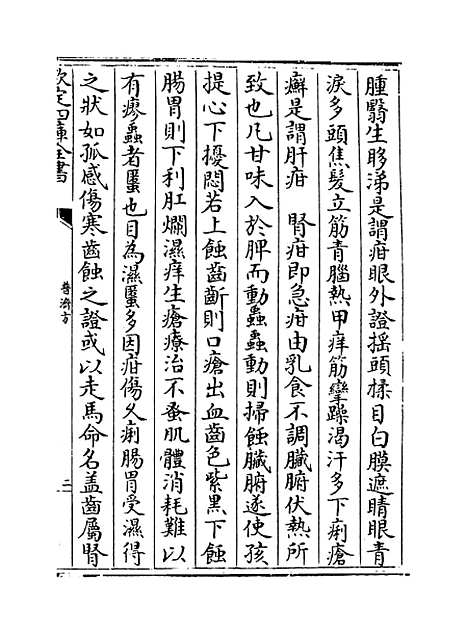 腫翳生眵淚是謂疳眼外證揺頭揉目白膜遮睛眼青
淚多頭焦髮立筋青腦熱甲痒筋攣躁渴汗多下痢瘡
癬是謂肝疳　腎疳即急疳由乳食不調臟腑伏熱所
致也凡甘味入於脾而動蟲蟲動則掃蝕臟腑遂使孩
提心下擾悶若上蝕齒齗則口瘡出血齒色紫黑下蝕
腸胃則下利肛爛濕痒生瘡療治不蚤肌體消耗難以
有瘳蟲者䘌也目為濕䘌多因疳傷久痢腸胃受濕得
之狀如狐感傷寒齒蝕之證或以走馬命名盖齒屬腎
欽定四庫全書
普濟方
二